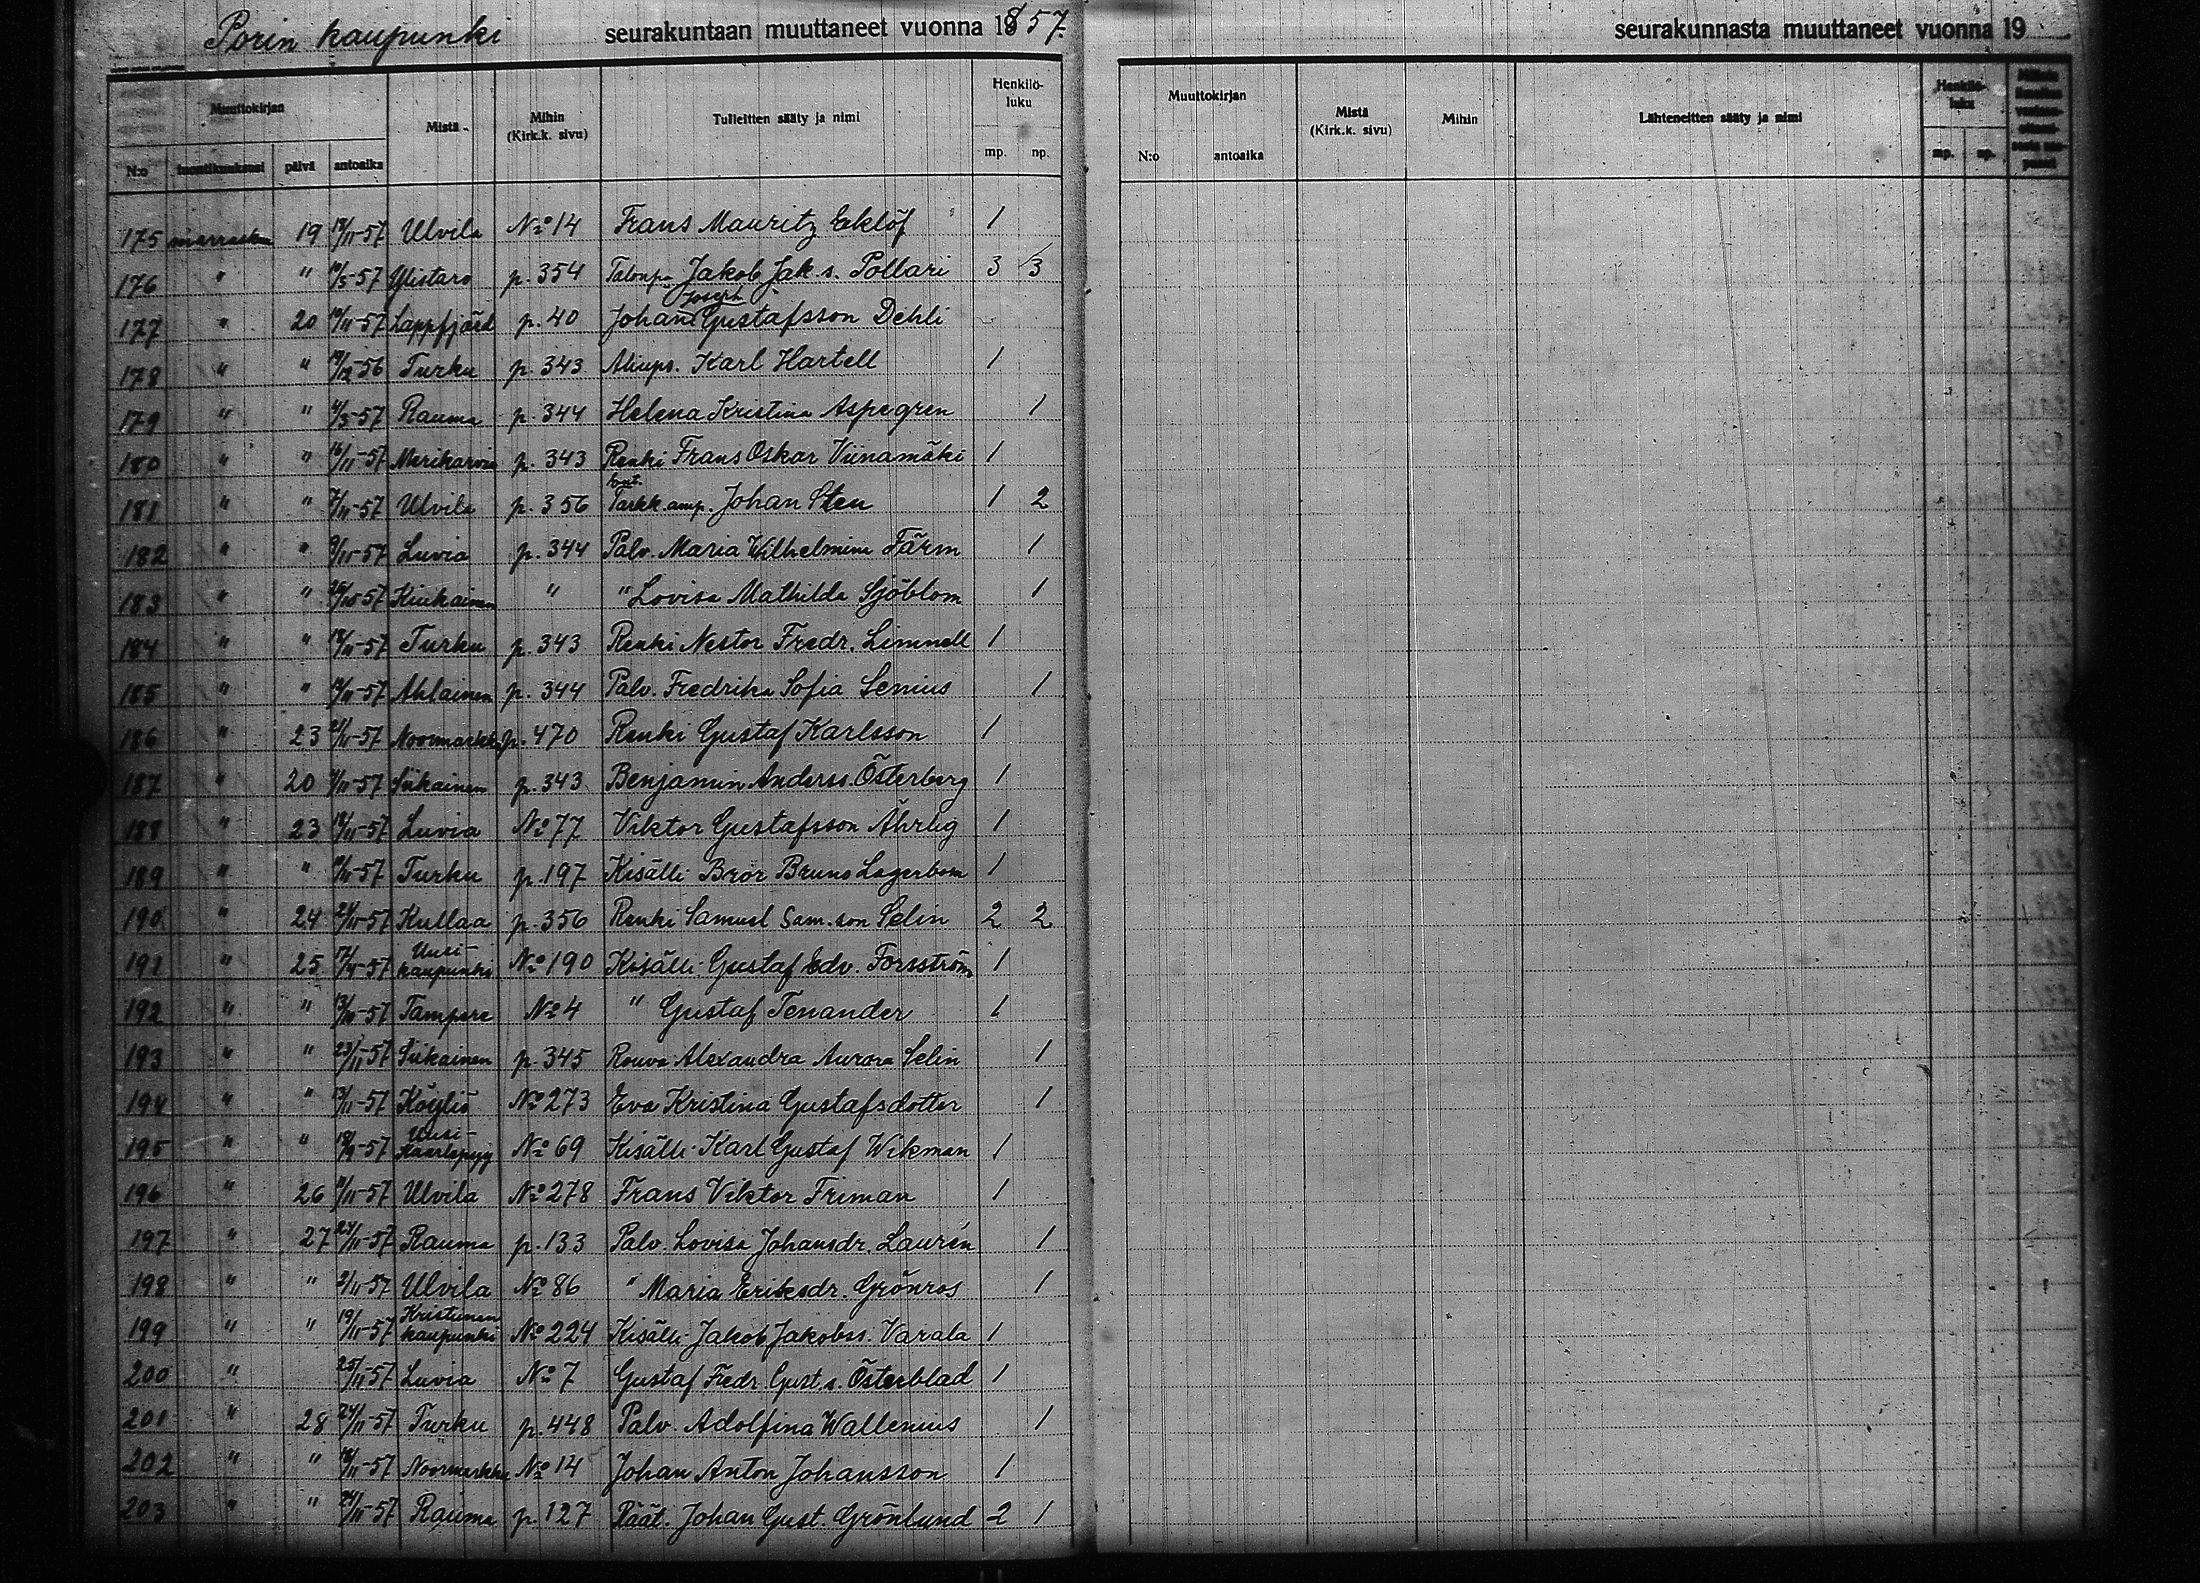 Porin kaupunki seurakuntaan muuttaneet vuonna 1857.
Muuttokirjan Mistä Mihin (Kirk.k. sivu) Tulleitten sääty ja nimi Henkilö-luku
N:o päivä antoaika mp. np.
175 marraskuu 19 19/11-57 Ulvila No 14 Frans Mauritz Eklöf 1
176 " " 57 Ylistaro p. 354 Talonp. Jakob Jak.s. Pollari 3 3
Joseph
177 " 20 57 Lappfjärd p. 40 Johan Gustafsson Dehli
178 " " 56 Turku p. 343 Aliups. Karl Hartell 1
179 " " 57 Rauma p. 344 Helena Kristina Aspegren 1
180 " " 16/11-57 Merikarvia p. 343 Renki Frans Oskar Viinamäki 1
181 " " 7/11-57 Ulvila p. 356 Tarkk.amp. Johan Sten 1 2
182 " " 57 Luvia p. 344 Palv. Maria Wilhelmina Färm 1
183 " " 57 Kiukainen " " Lovisa Mathilda Sjöblom 1
184 " " 57 Turku p. 343 Renki Nestor Fredr. Limnell 1
185 " " 57 Ahlainen p. 344 Palv. Fredrika Sofia Senius 1
186 " 23 57 Noormarkku p. 470 Renki Gustaf Karlsson 1
187 " 20 57 Siikainen p. 343 Benjamin Anderss. Österberg 1
188 " 23 57 Luvia No 77 Viktor Gustafsson Ährlig 1
189 " " 57 Turku p. 197 Kisälli Bror Bruno Lagerbom 1
190 " 24 24/11-57 Kullaa p. 356 Renki Samuel Sam.son Selin 2 2
191 " 25 57 Uusi-kaupunki No 190 Kisälli Gustaf Edv. Forsström 1
192 " " 57 Tampere No 4 " Gustaf Tenander 1
193 " " 23/11-57 Siikainen p. 345 Rouva Alexandra Aurora Selin 1
194 " " 13/11-57 Köyliö No 273 Eva Kristina Gustafsdotter 1
195 " " 57 Uusi-Kaarlepyy No 69 Kisälli Karl Gustaf Wikman 1
196 " 26 57 Ulvila No 278 Frans Viktor Friman 1
197 " 27 57 Rauma p. 133 Palv. Lovisa Johansdr. Laurén 1
198 " " 2/11-57 Ulvila No 86 " Maria Eriksdr. Grönros 1
199 " " 19/11-57 Kristiinan kaupunki No 224 Kisälli Jakob Jakobss. Varala 1
200 " 25/11-57 Luvia No 7 Gustaf Fredr. Gust.s. Österblad 1
201 " 28 24/11-57 Turku p. 448 Palv. Adolfina Wallenius 1
202 " " 57 Noormarkku No 14 Johan Anton Johansson 1
203 " " 24/11-57 Rauma p. 127 Räät. Johan Gust. Grönlund 2 1
seurakunnasta muuttaneet vuonna 19
Muuttokirjan Mistä (Kirk.k. sivu) Mihin Lähteneitten sääty ja nimi Henkilö-luku
N:o antoaika mp. np.